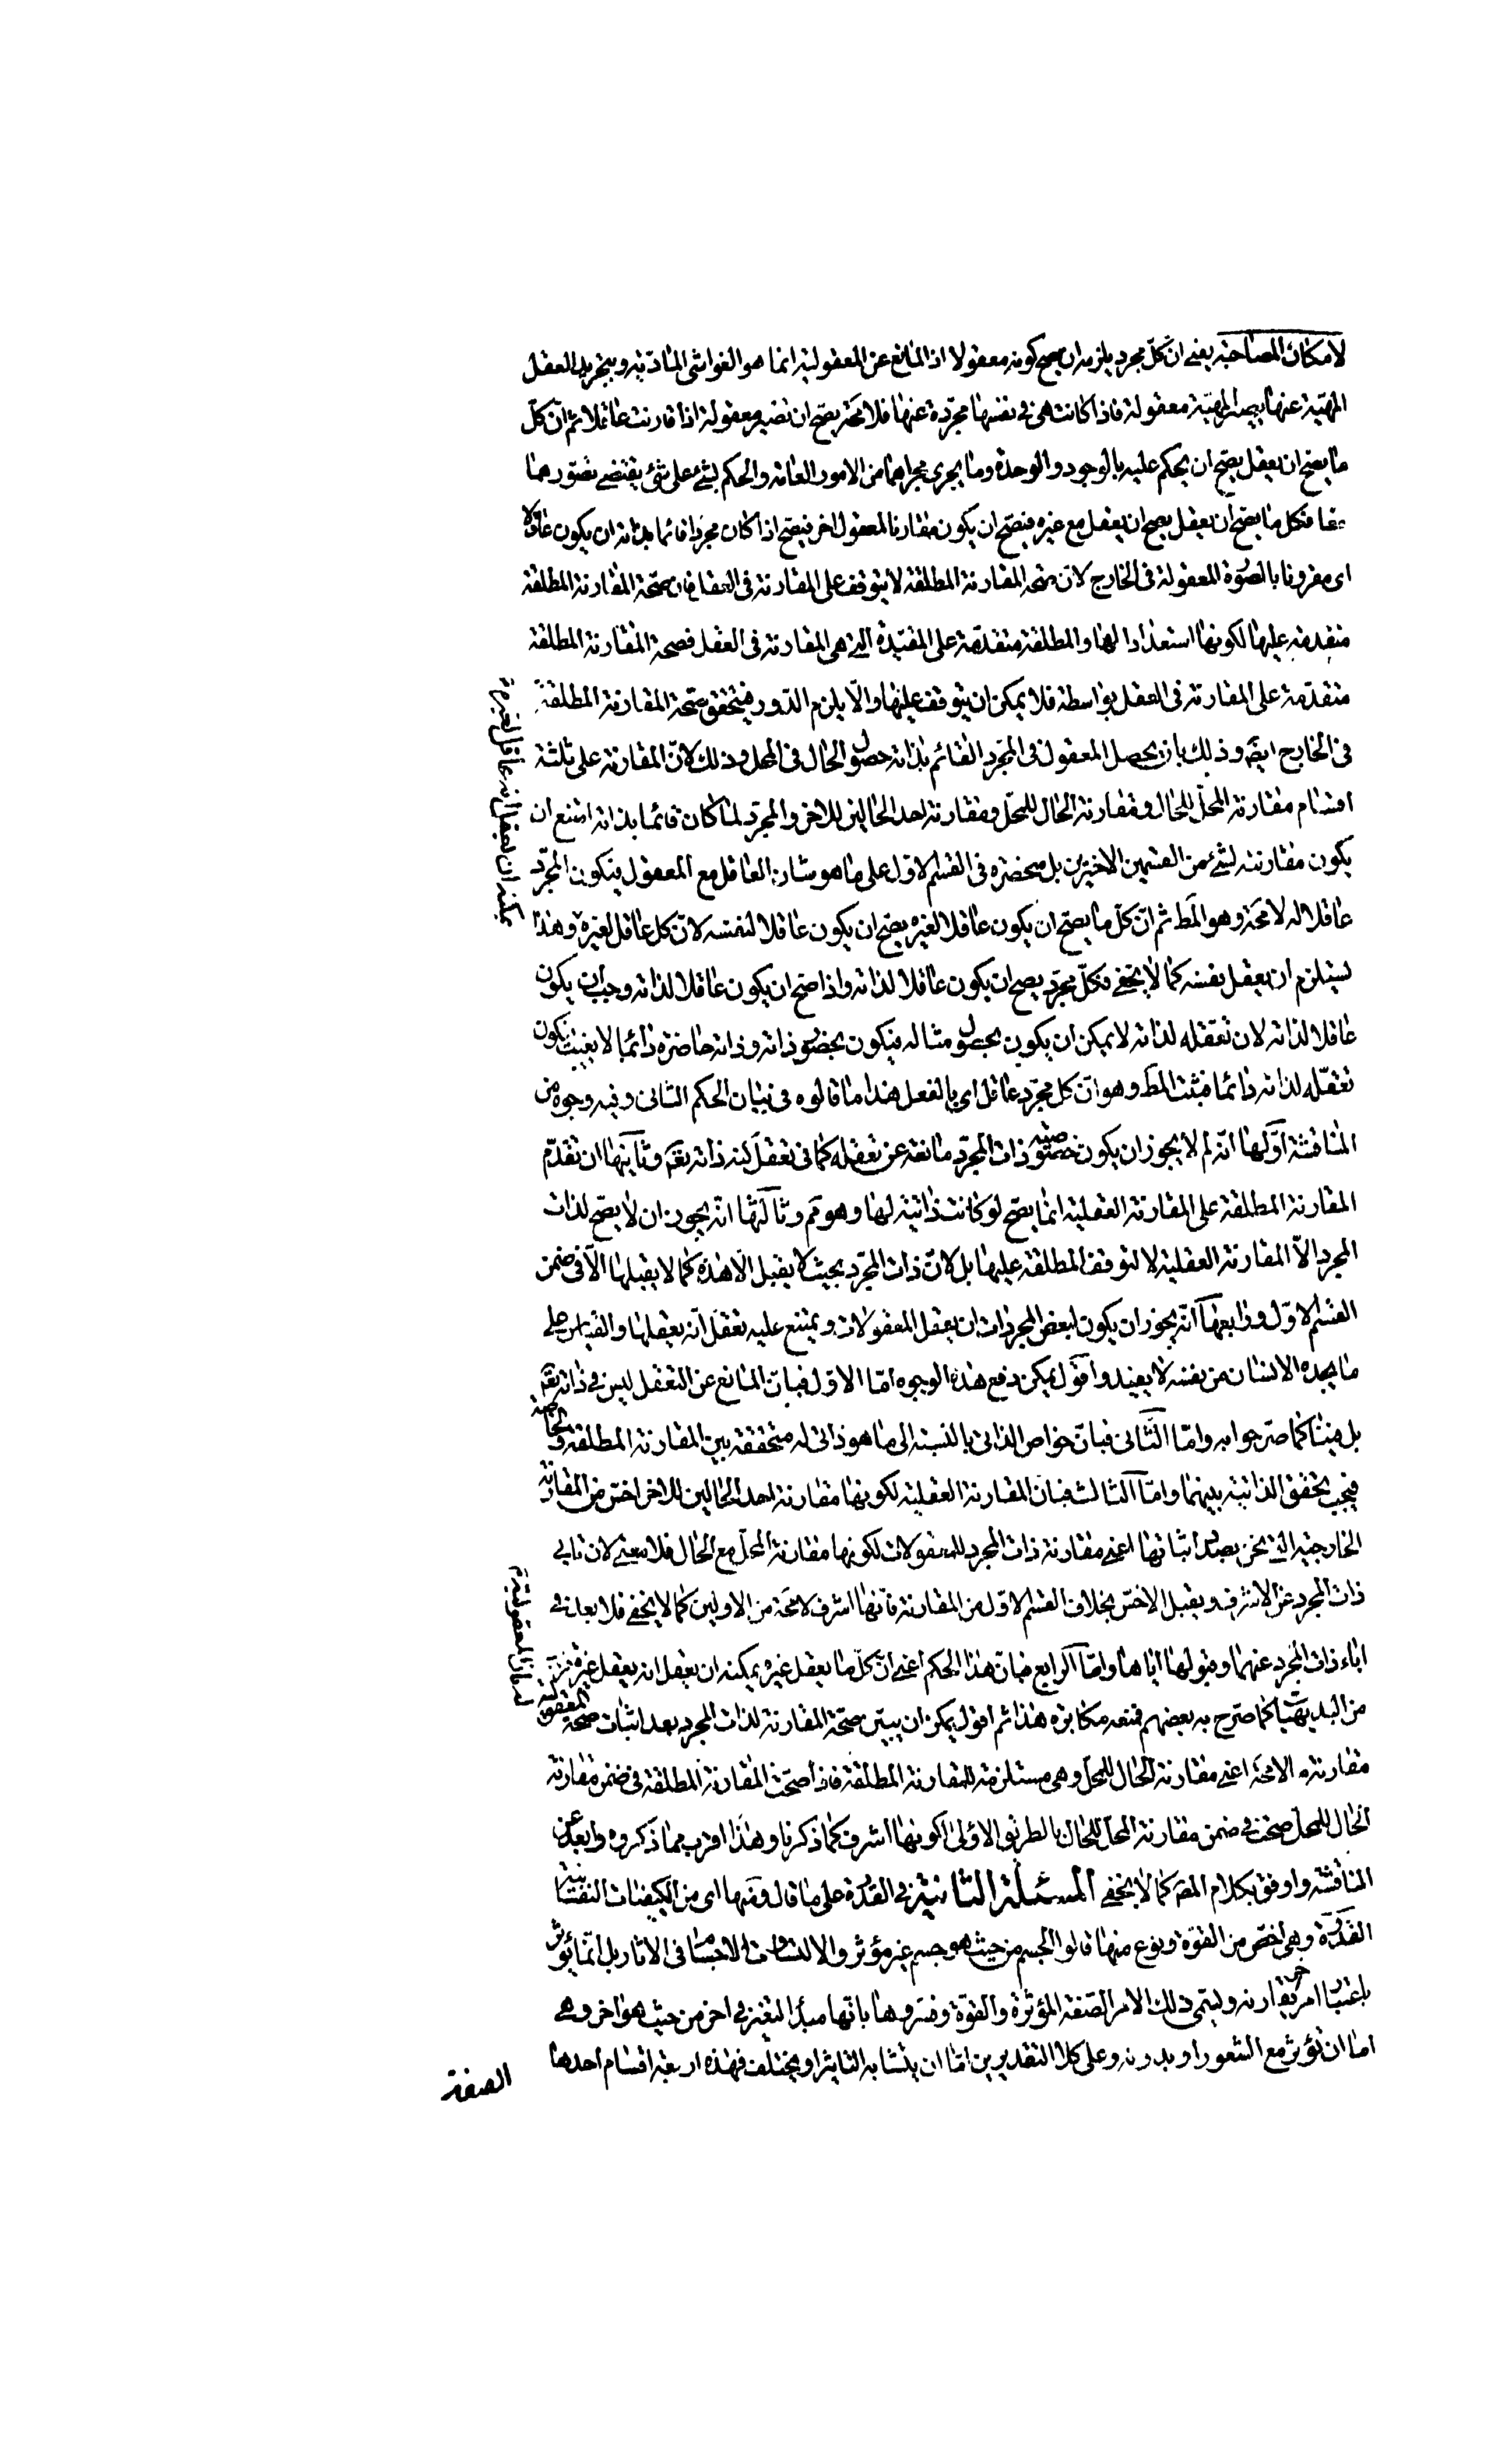 لامكان المصاحبة يعنى ان كلّ مجرد يلزمه ان يصح كونه معقولا اذ المانع عن المعقولية انما هو الغواشى المادّية وبتجريد العقل
المهيّة عنها يصير المهيّة معقولة فاذا كانت هى فى نفسها مجرّدة عنها فلا محة يصحّ ان تصير معقولة اذا قارنت عاقلا ثم انّ كلّ
ما يصح ان يعقل يصحّ ان يحكم عليه بالوجود والوحدة وما يجرى مجراهما من الامور العامة والحكم بشئ على شئ يقتضى تصوّرهما
معا فكل ما يصحّ ان يعقل يصح ان يعقل مع غيره فيصحّ ان يكون مقارنا لمعقول اخر فيصحّ اذا كان مجردا قائما بذاته ان يكون عاقلا
اى مقرونا بالصورة المعقولة فى الخارج لانّ صحة المقارنة المطلقة لا يتوقف على المقارنة فى العقل فان صحّة المقارنة المطلقة
متقدمة عليها لكونها استعدادا لها والمطلقة متقدّمة على المقيّدة التى هى المقارنة فى العقل فصحة المقارنة المطلقة
متقدّمة على المقارنة فى العقل بواسطة فلا يمكن ان يتوقف عليها والّا يلزم الدّور فيتحقق صحّة المقارنة المطلقة
فى الخارج ايضا وذلك بان يحصل المعقول فى المجرّد القائم بذاته حصول الحال فى المحل وذلك لانّ المقارنة على ثلثة
اقسام مقارنة المحلّ للحال ومقارنة الحال للمحلّ ومقارنة احد الحالين للاخر والمجرّد لما كان قائما بذاته امتنع ان
يكون مقارنته لشئ من القسمين الاخيرين بل منحصره فى القسم الاول على ما هو شان العاقل مع المعقول فيكون المجرّد
عاقلا له لا محة وهو المط ثم انّ كلّ ما يصحّ ان يكون عاقلا لغيره يصحّ ان يكون عاقلا لنفسه لانّ كل عاقل لغيره وهذا
يمكنه ان يعقل انه عاقل لغيره
يستلزم ان يعقل نفسه كما لا يخفى فكلّ مجرّد يصح ان يكون عاقلا لذاته واذا صحّ ان يكون عاقلا لذاته وجب ان يكون
عاقلا لذاته لان تعقله لذاته لا يمكن ان يكون بحصول مثاله فيكون بحضور ذاته وذاته حاضرة دائما لا يغيب فيكون
تعقّله لذاته دائما فثبت المط وهو انّ كل مجرّد عاقل اى بالفعل هذا ما قالوه فى بيان الحكم الثانى وفيه وجوه من
المناقشة اوّلها انّه لم لا يجوز ان يكون خصوصية ذات المجرّد مانعة عن تعقله كما فى تعقل كنه ذاته تعم وثانيها ان تقدّم
المقارنة المطلقة على المقارنة العقلية انما يصحّ لو كانت ذاتية لها وهو مم وثالثها انّه يجوز ان لا يصحّ لذات
المجرد الّا المقارنة العقلية لا لتوقف المطلقة عليها بل لانّ ذات المجرّد بحيث لا يقبل الّا هذه كما لا يقبلها الّا فى ضمن
القسم الاوّل ورابعها انّه يجوز ان يكون لبعض المجردات ان يعقل المعقولات ويمتنع عليه تعقل انّه يعقلها والقياس على
ما يجده الانسان من نفسه لا يفيد واقول يمكن دفع هذه الوجوه امّا الاوّل فبان المانع عن التعقل ليس فى ذاته تعم
بل فينا كما مرّ جوابه وامّا الثانى فبانّ خواص الذاتى بالنسبة الى ما هو ذاتى له متحققة بين المقارنة المطلقة والخاصة
فيجب تحقق الذاتية بينهما وامّا الثالث فبان المقارنة العقلية لكونها مقارنة احد الحالين للاخر اخسّ من المقارنة
الخارجية التى نحن بصدد اثباتها اعنى مقارنة ذات المجرد للمعقولات لكونها مقارنة المحلّ مع الحال فلا معنى لان تابى
ذات المجرد عن الاشرف ويقبل الاخسّ بخلاف القسم الاوّل من المقارنة فانّها اشرف لا محة من الاوليين كما لا يخفى فلا بعد فى
اباء ذات المجرد عنهما وقبولها اياها وامّا الرابع فبان هذا الحكم اعنى انّ كلّ ما يعقل غيره يمكنه ان يعقل انه يعقل غيره
من البديهيات كما صرّح به بعضهم فمنعه مكابرة هذا ثم اقول يمكن ان يبيّن صحّة المقارنة لذات المجرد بعد اثبات صحة المعقولية
مقارنته لا محة اعنى مقارنة الحال للمحلّ وهى مستلزمة للمقارنة المطلقة فاذا صحّت المقارنة المطلقة فى ضمن مقارنة
الحال للمحل صحت فى ضمن مقارنة المحلّ للحال بالطريق الاولى لكونها اشرف كما ذكرنا وهذا اقرب مما ذكروه وابعد عن
المناقشة واوفق بكلام المصـ كما لا يخفى المسئلة الثانية فى القدرة على ما قال ومنها اى من الكيفيات النفسانية
القدرة وهى اخصّ من القوّة ونوع منها قالوا الجسم من حيث هو جسم غير مؤثر والا لتساوت الاجسام فى الاثار بل انّما يؤثر
باعتبار امر اخر يقارنه ويسمّى ذلك الامر الصّفة المؤثرة والقوّة وفسّروها بانّها مبدأ التغير فى اخر من حيث هو اخر وهى
اما ان تؤثر مع الشعور او بدونه وعلى كلا التقديرين امّا ان يتشابه التاثير او يختلف فهذه اربعة اقسام احدها
الصفة